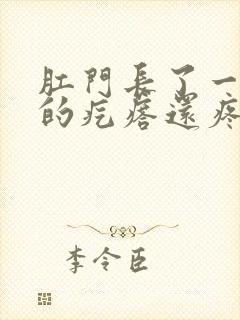 肛門長了一
的疙瘩還疼
李令臣